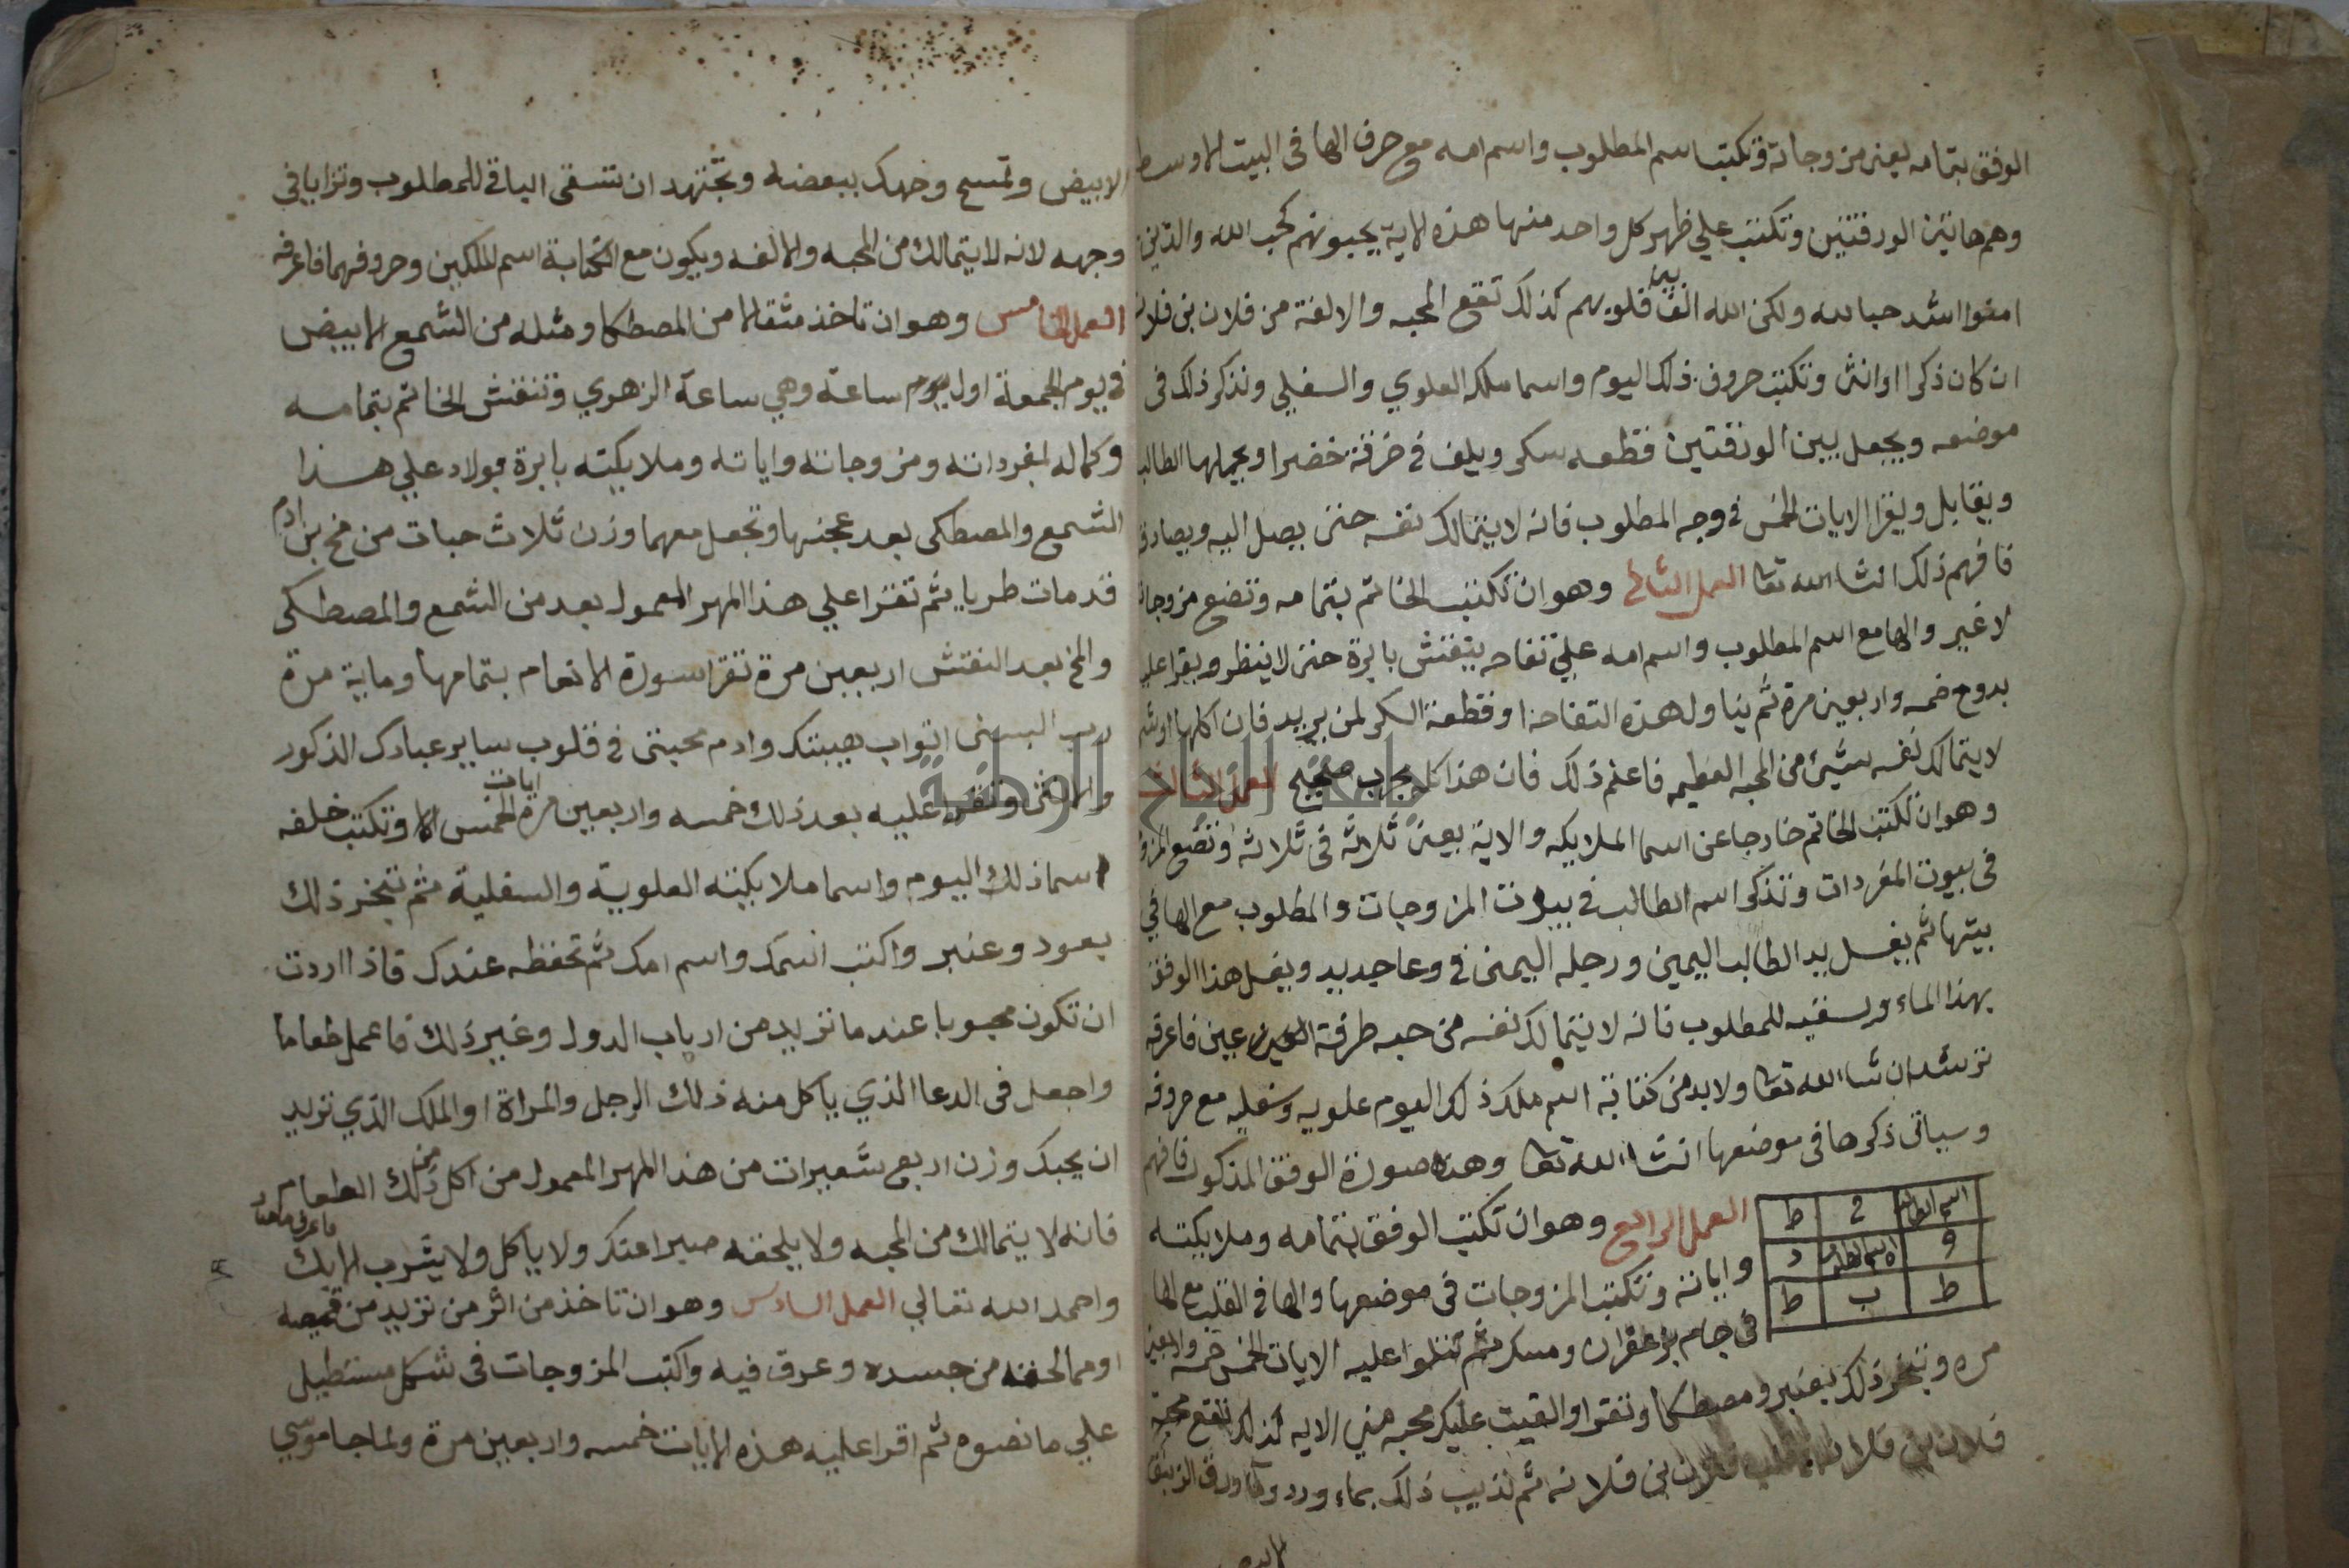 الوفق بتمامه يعنى مزوجاته وتكتب اسم المطلوب واسم امه مع حرف الها فى البيت الاوسط
وهم هاتين الورقتين وتكتب علي ظهر كل واحد منها هذه الاية يحبونهم كحب الله والذين
امنوا اشد حبا لله ولكن الله الف بين قلوبهم كذلك تقع المحبه والالفة من فلان بن فلان
ان كان ذكرا او انثى وتكتب حروف ذلك اليوم واسما ملكه العلوي والسفلي وتذكر ذلك فى
موضعه ويجعل بين الورقتين قطعه سكر ويلف فى خرقة خضرا ويحملها الطالب
ويقابل ويقرا الايات الخمس فى وجه المطلوب فانه لا يتمالك نفسه حتى يصل اليه ويصادق
فافهم ذلك انشا الله تعا العمل الثانى وهو ان تكتب الخاتم بتمامه وتضع مزوجاته
لا غير والها مع اسم المطلوب واسم امه علي تفاحه بنقش بابرة حتى لا ينظر ويقرا عليه
بدوح خمسه واربعين مرة ثم يناوله هذه التفاحة او قطعة السكر لمن يريد فان اكلها او شم
لا يتمالك نفسه بشيئ من المحبه العظيمه فاعلم ذلك فان هذا كله مجرب صحيح العمل الثالث
جامعة النجاح الوطنية
وهو ان تكتب الخاتم خارجا عن اسما الملايكه والاية يعنى ثلاثة فى ثلاثه وتضع المزوجات
فى بيوت المفردات وتذكر اسم الطالب فى بيوت المزوجات والمطلوب مع الها في
بيتها ثم يغسل يد الطالب اليمين ورجله اليمنى فى وعا جديد ويغسل هذا الوفق
بهذا الماء ويسقيه للمطلوب فانه لا يتمالك نفسه من حبه طرفة عين فاعرفه
ترشد ان شا الله تعا ولابد من كتابة اسم ملك ذلك اليوم علويه وسفليه مع حروفه
وسياتى ذكرها فى موضعها انشا الله تعا وهذه صورة الوفق المذكور فافهم
اسم الطالب 2 ط
و ه اسم المطلوب د
ط ب ط
العمل الرابع وهو ان تكتب الوفق بتمامه وملايكته
واياته وتكتب المزوجات فى موضعها والها فى القلب مع الها
فى جام بزعفران ومسك ثم تتلوا عليه الايات الخمس خمسه واربعين
مره وتبخر ذلك بعنبر ومصطكا وتقرا والقيت عليك محبه مني الايه كذلك تقع محبة
فلان بن فلانه فلان بن فلانه ثم تذيب ذلك بماء ورد وماء ورق الزنبق
الابيض
الابيض وتمسح وجهك ببعضه وتجتهد ان تسقى الباقى للمطلوب وتزايا في
وجهه لانه لا يتمالك من المحبه والالفه ويكون مع الكتابة اسم الملكين وحروفهما فاعرفه
العمل الخامس وهو ان تاخذ مثقالا من المصطكا ومثله من الشمع الابيض
فى يوم الجمعة اول يوم ساعة وهي ساعة الزهري وتنقش الخاتم بتمامه
وكماله لمفرداته ومزوجاته واياته وملايكته بابرة فولاد علي هذا
الشمع والمصطكى بعد عجنها وتجعل معهما وزن ثلاث حبات من مخ بن ادم
قد مات طريا ثم تقرا علي هذا المهر المعمول بعد من الشمع والمصطكى
والمخ بعد النقش اربعين مرة تقرا سورة الانعام بتمامها وماية مرة
رب البسنى اثواب هيبتك وادم محبتى فى قلوب ساير عبادك الذكور
والانثى وتقرا عليه بعد ذلك خمسه واربعين مرة الخمس ايات وتكتب خلفه
اسما ذلك اليوم واسما ملايكته العلوية والسفلية ثم تبخر ذلك
بعود وعنبر واكتب اسمك واسم امك ثم تحفظه عندك فاذا اردت
ان تكون محبوبا عند ما تريد من ارباب الدول وغير ذلك فاعمل طعاما
واجعل فى الدعا الذي ياكل منه ذلك الرجل والمراة او الملك الذي تريد
ان يحبك وزن اربع شعيرات من هذا المهر المعمول من اكل من ذلك الطعام
فانه لا يتمالك من المحبه ولا يلحقه صبرا عنك ولا ياكل ولا يشرب الا بك
واحمد الله تعالي العمل السادس وهو ان تاخذ من اثر من تريد من قميصه
او مما لحقه من جسده وعرق فيه واكتب المزوجات فى شكل مستطيل
علي ما نصوه ثم اقرا عليه هذه الايات خمسه واربعين مرة ولما جا موسي